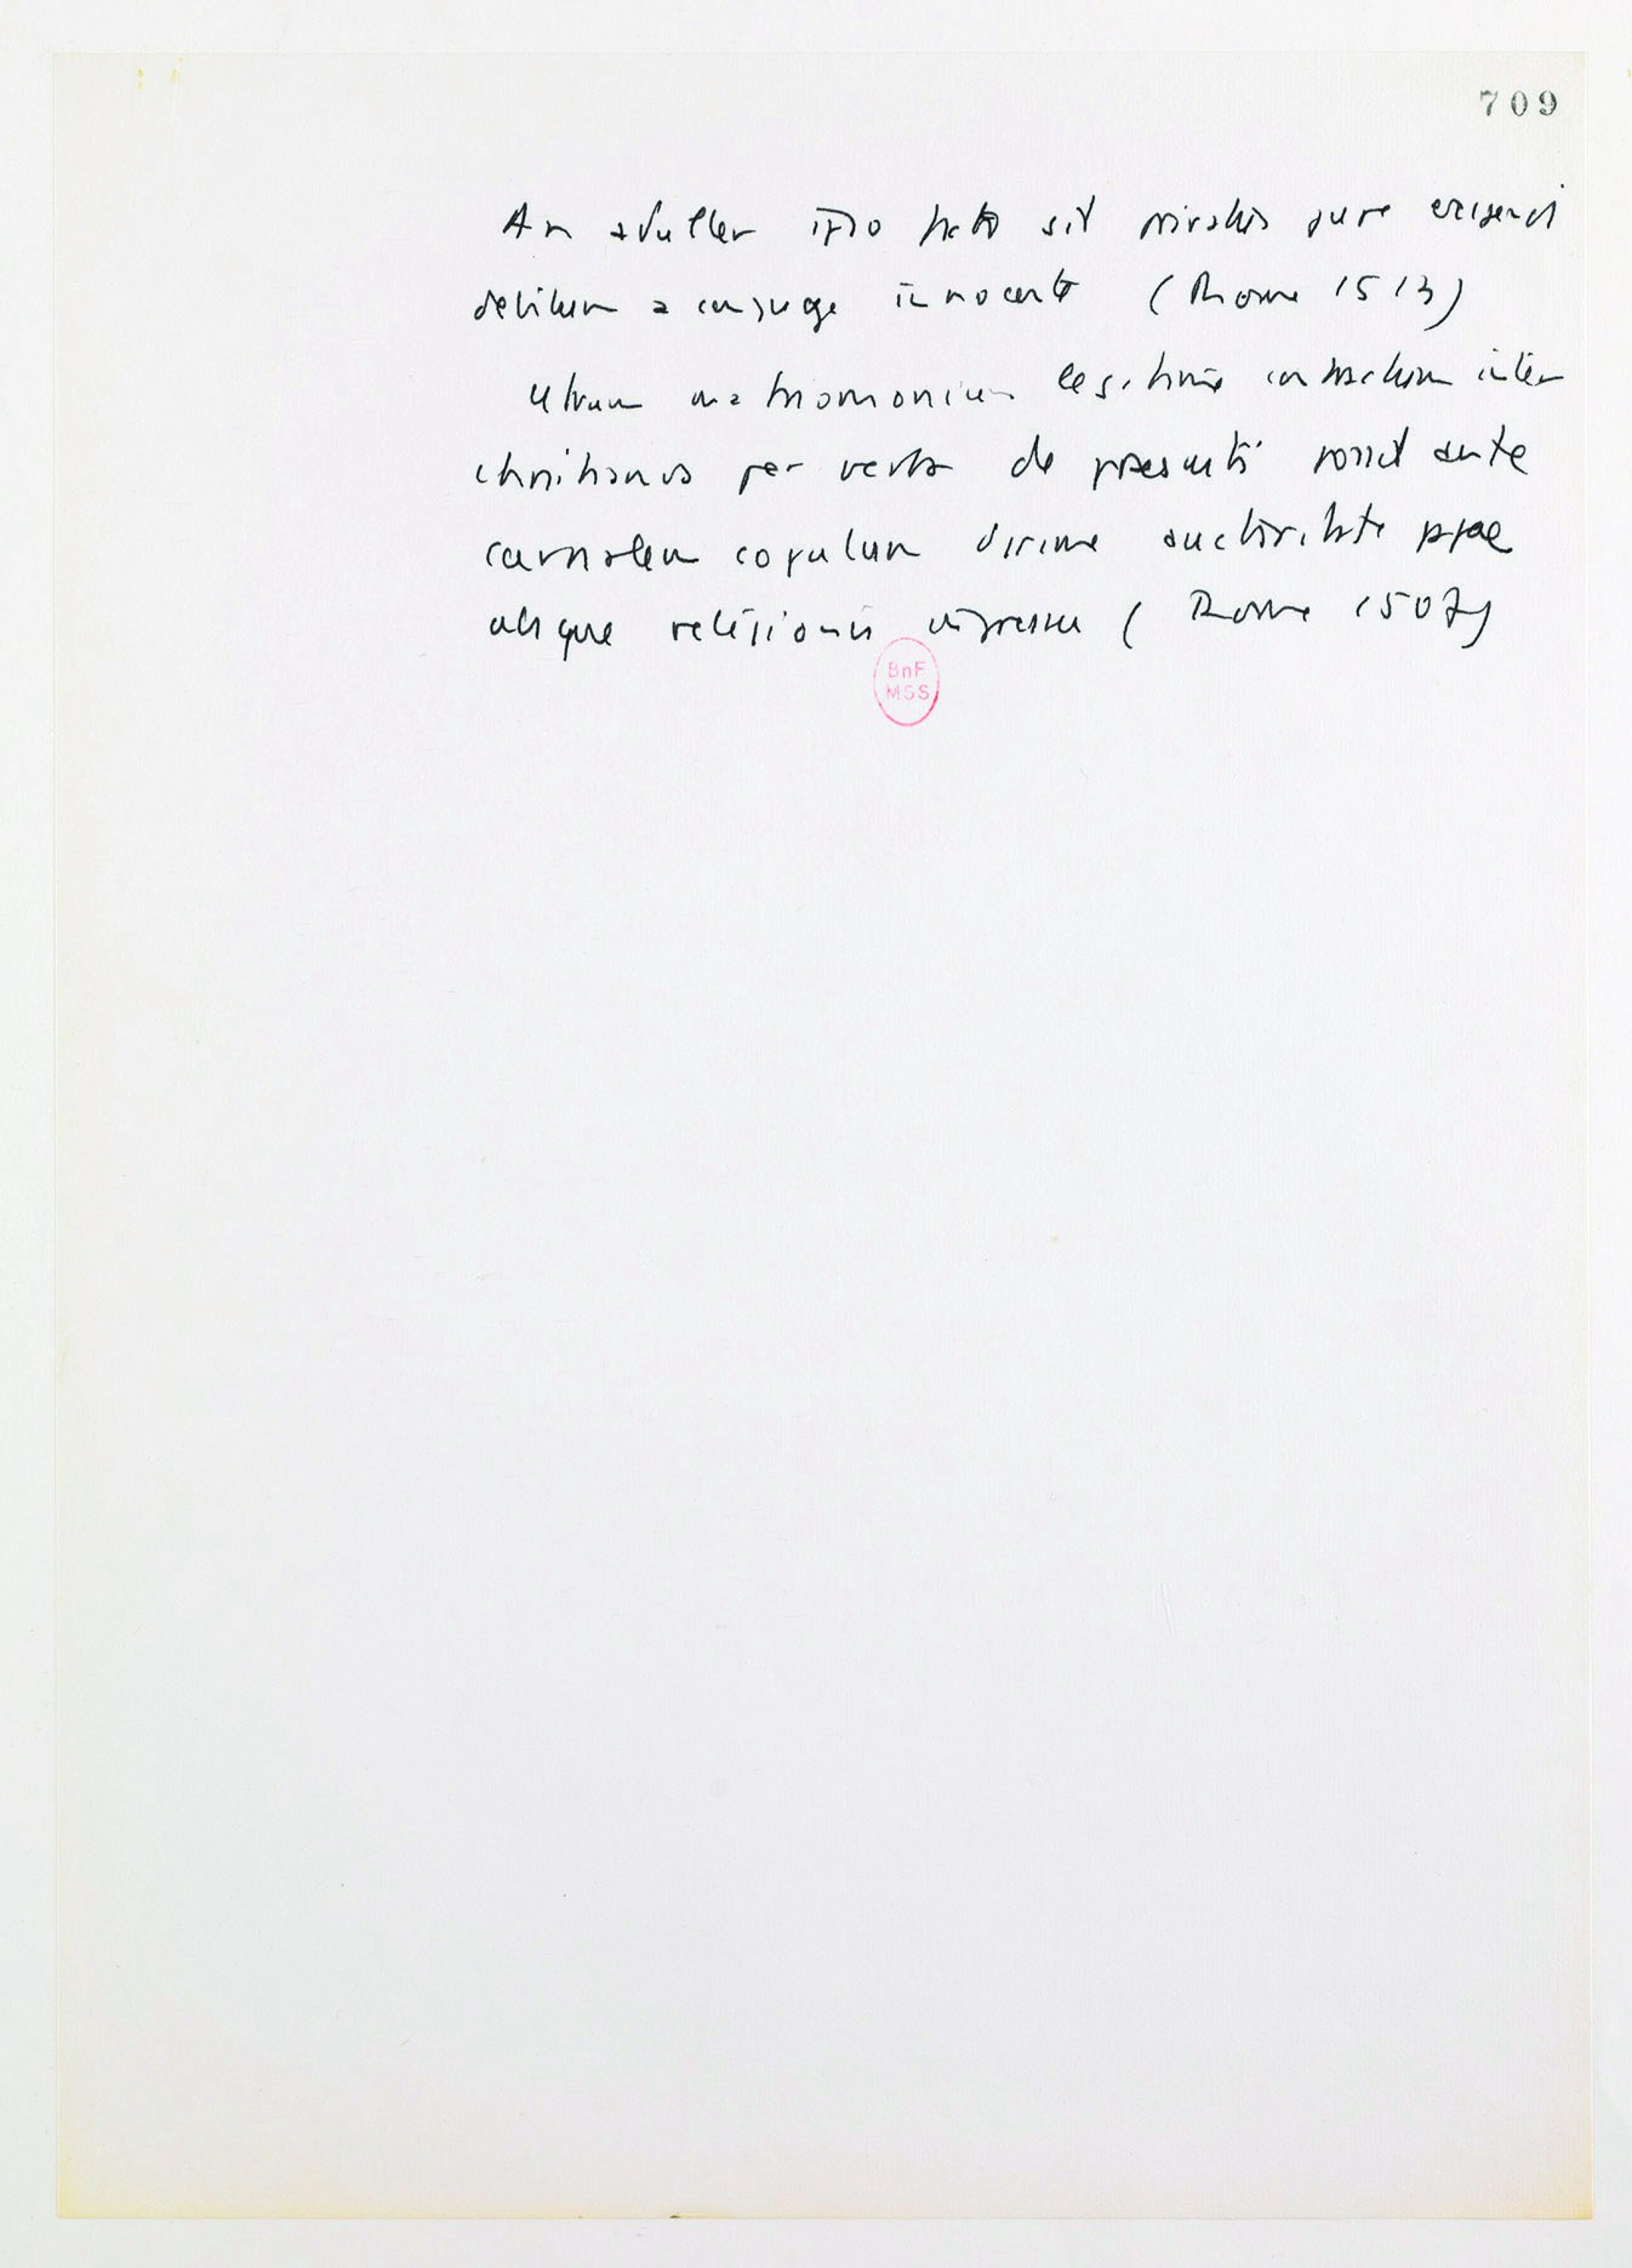 709
An adulter ipso facto sit privatus jure exigendi
debitum a conjuge innocente (Rome 1513)
Utrum matrimonium legitime contractum inter
christianos per verba de praesenti possit ante
carnalem copulam dirime auctoritate papae
absque religionis ingressu (Rome 1507)
BnF
MSS